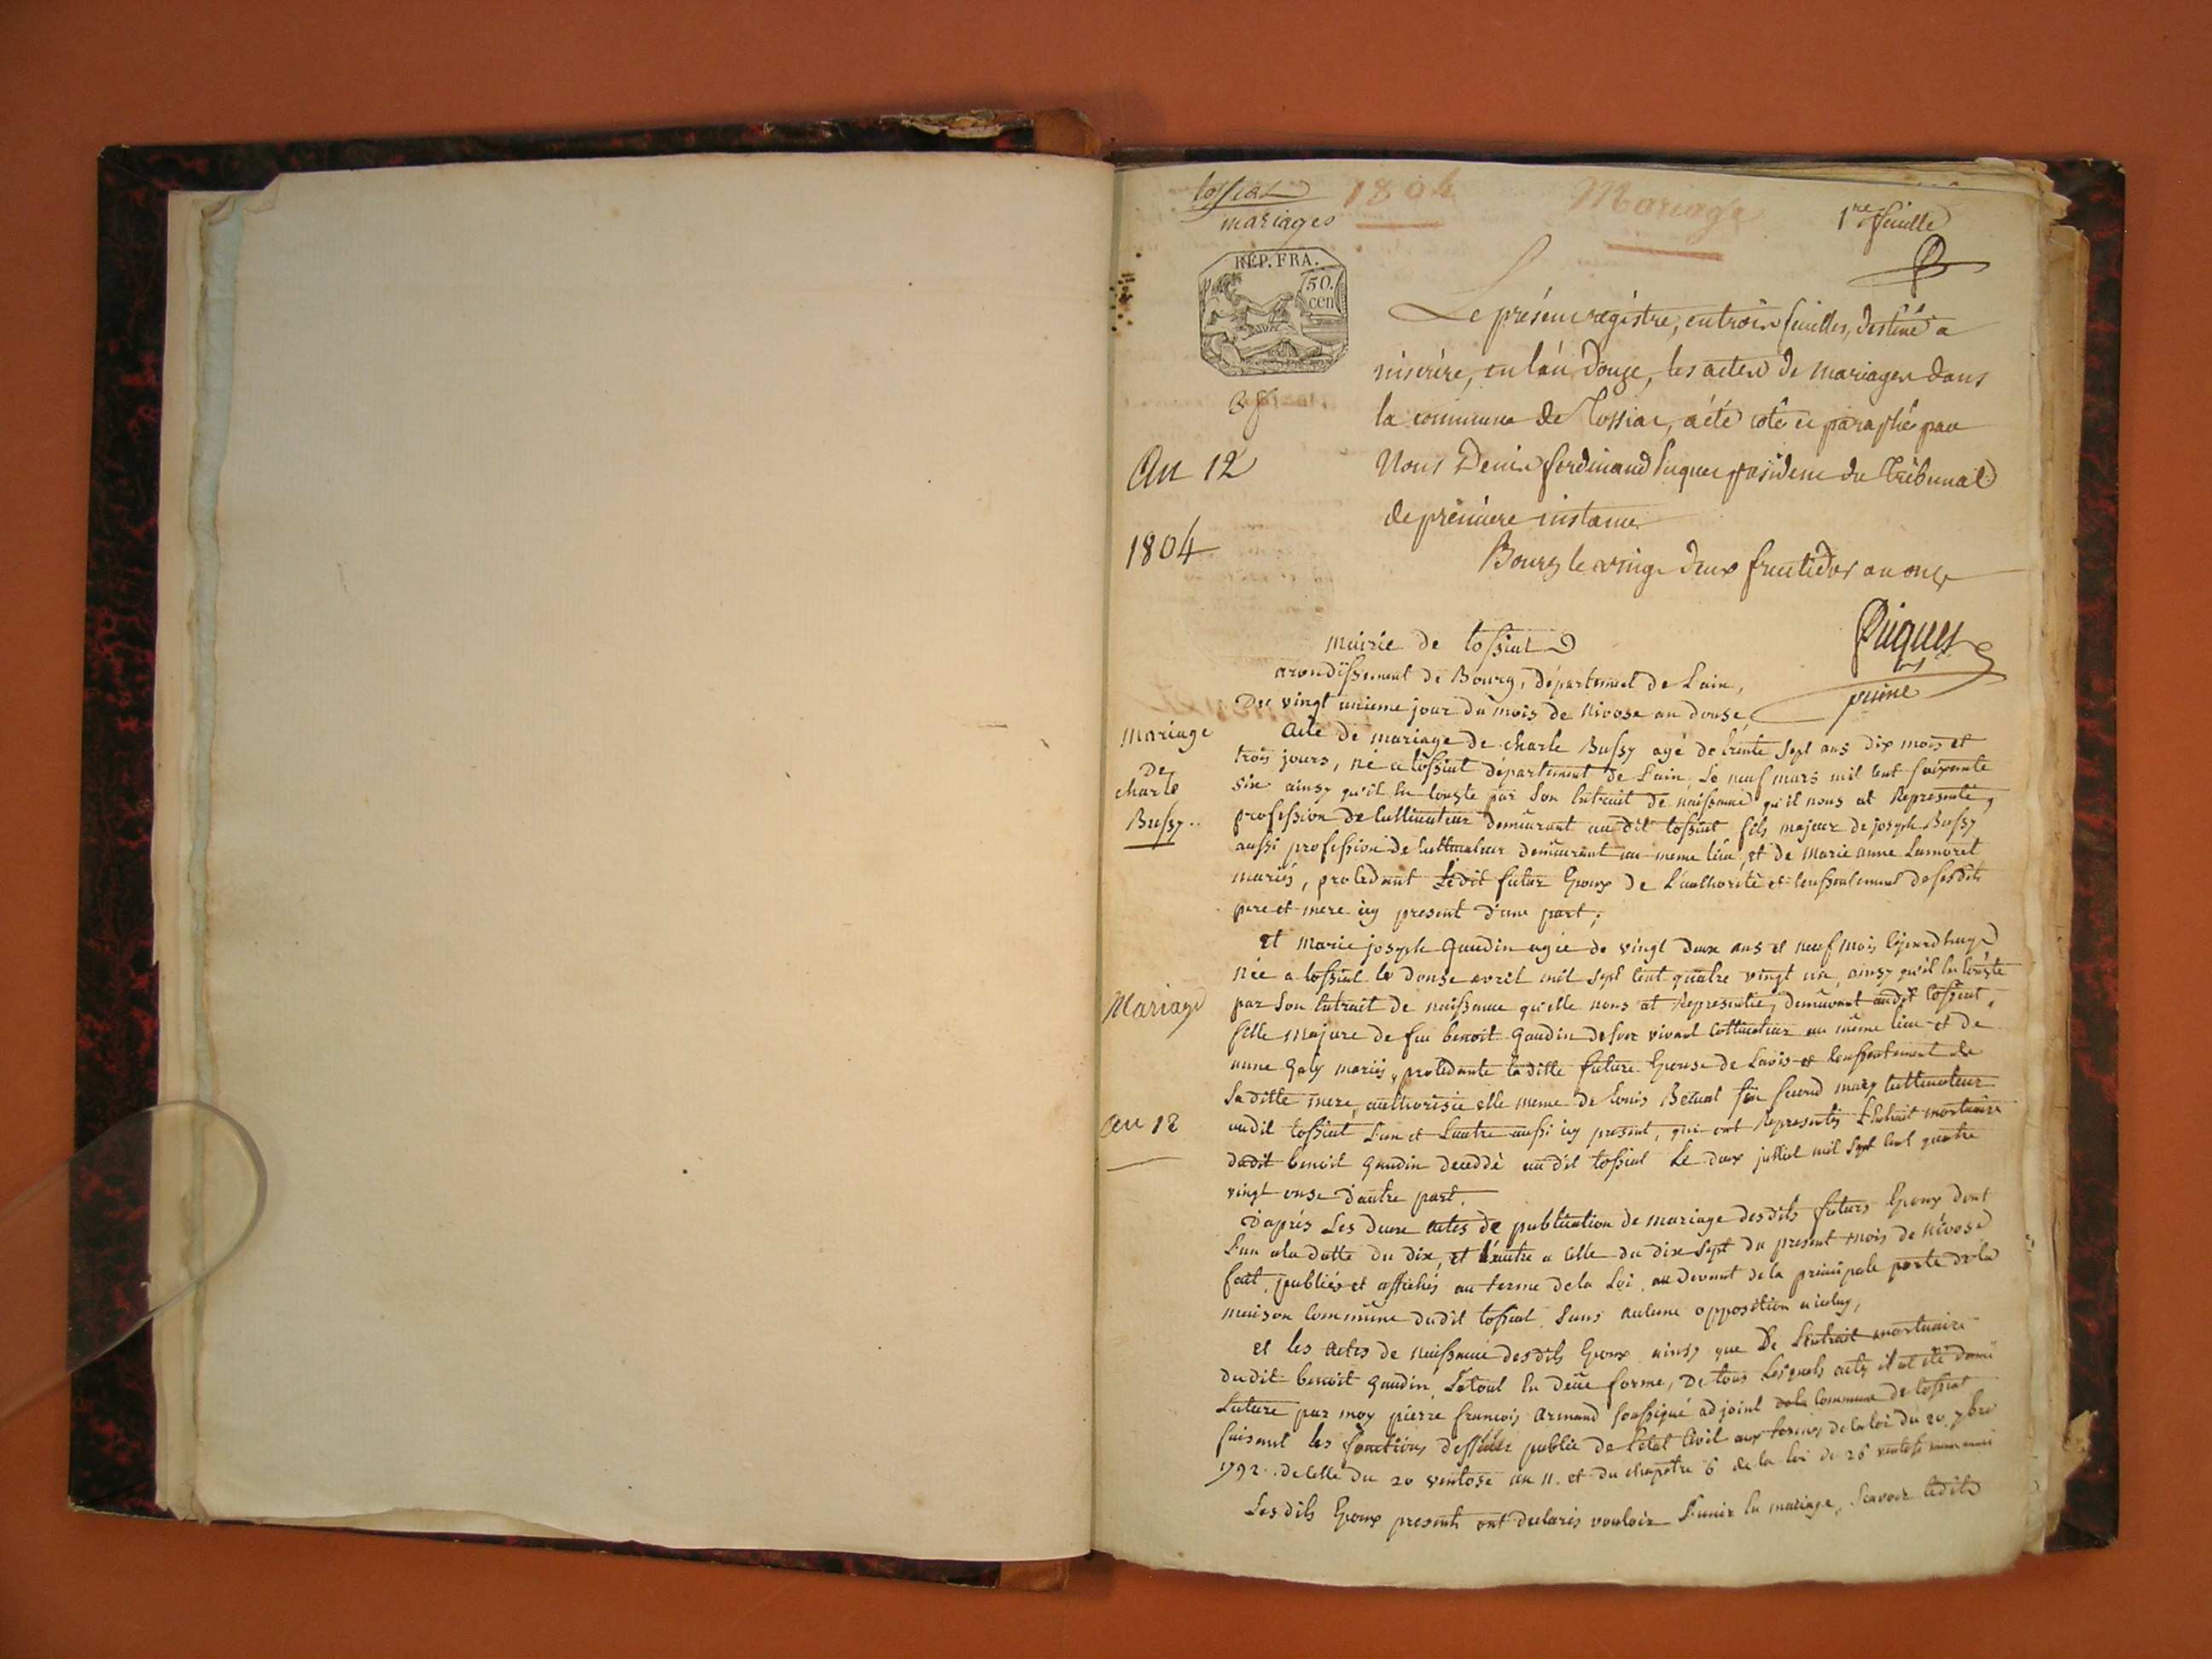 tossiat
mariages
1804
Mariage
1re feuille
RÉP. FRA.
50.
cen
Le présent registre, en trois feuilles, destiné a
insérer, en l'an douze, les actes de mariages dans
la commune de Tossiat, a été coté et paraphé par
Nous Denis ferdinand Puquet président du tribunal
de première instance
Bourg le vingt deux fructidor an onze
Puquet
An 12
1804
mairie de tossiat
arondissement de Bourg, département de Lain,
Du vingt unieme jour du mois de Nivose an douse,
mariage
De
charle
Bussy..
Acte de mariage de charle Bussy agé de trente sept ans dix mois et
trois jours, né a tossiat département de Lain. Le neuf mars mil cent soixante
six ainsy qu'il en conste par son Extrait de naissance qu'il nous at Representé,
profession de cultivateur demeurant au dit tossiat fils majeur de joseph Bussy
aussi profession de cultivateur demeurant au meme lieu, et de marie anne Lamoret
mariés, procédant Le dit futur Epoux de L'authorité et consentement de ses dits
pere et mère icy present d'une part;
et marie joseph Gaudin agée de vingt deux ans et neuf mois
née a tossiat le douse avril mil sept cent quatre vingt un, ainsy qu'il en conste
par son Extrait de naissance qu'elle nous at Representée, demeurant audit tossiat,
fille majure de feu benoit Gaudin de son vivant cultivateur au même lieu et de
anne Galy mariés, procedante la ditte future Epouse de Lavis et consentement de
Sa ditte mere, authorisée elle meme de Louis Bétuat son second mary cultivateur
audit tossiat L'un et Lautre aussi icy present, qui ont Representés L'Extrait mortuaire
dudit benoit Gaudin decedé au dit tossiat Le deux juillet mil sept cent quatre
vingt onse d'autre part.
Mariage
an 12
D'après Les deux actes de publication de mariage desdits futurs Epoux dont
L'un a la datte du dix, et L'autre a celle du dix sept du present mois de Nivose
fait, publiés et affichés au terme de la Loi, au devant de la principale porte de la
maison commune dudit tossiat sans aucune opposition
et les actes de naissance desdits Epoux ainsy que De L'Extrait mortuaire
dudit benoit Gaudin, Le tout En deüe forme, De tous Lesquels actes il at été donné
Lecture par moy pierre françois Armand soussigné adjoint de la commune de tossiat
faisant les fonctions d'officier public de L'etat Civil aux termes de la loi du 20. 7bre
1792. de celle du 20 ventose an 11. et du chapitre 6 de la loi du 26 ventose
Les dits Epoux presents ont declarés vouloir S'unir En mariage, Scavoir Ledit